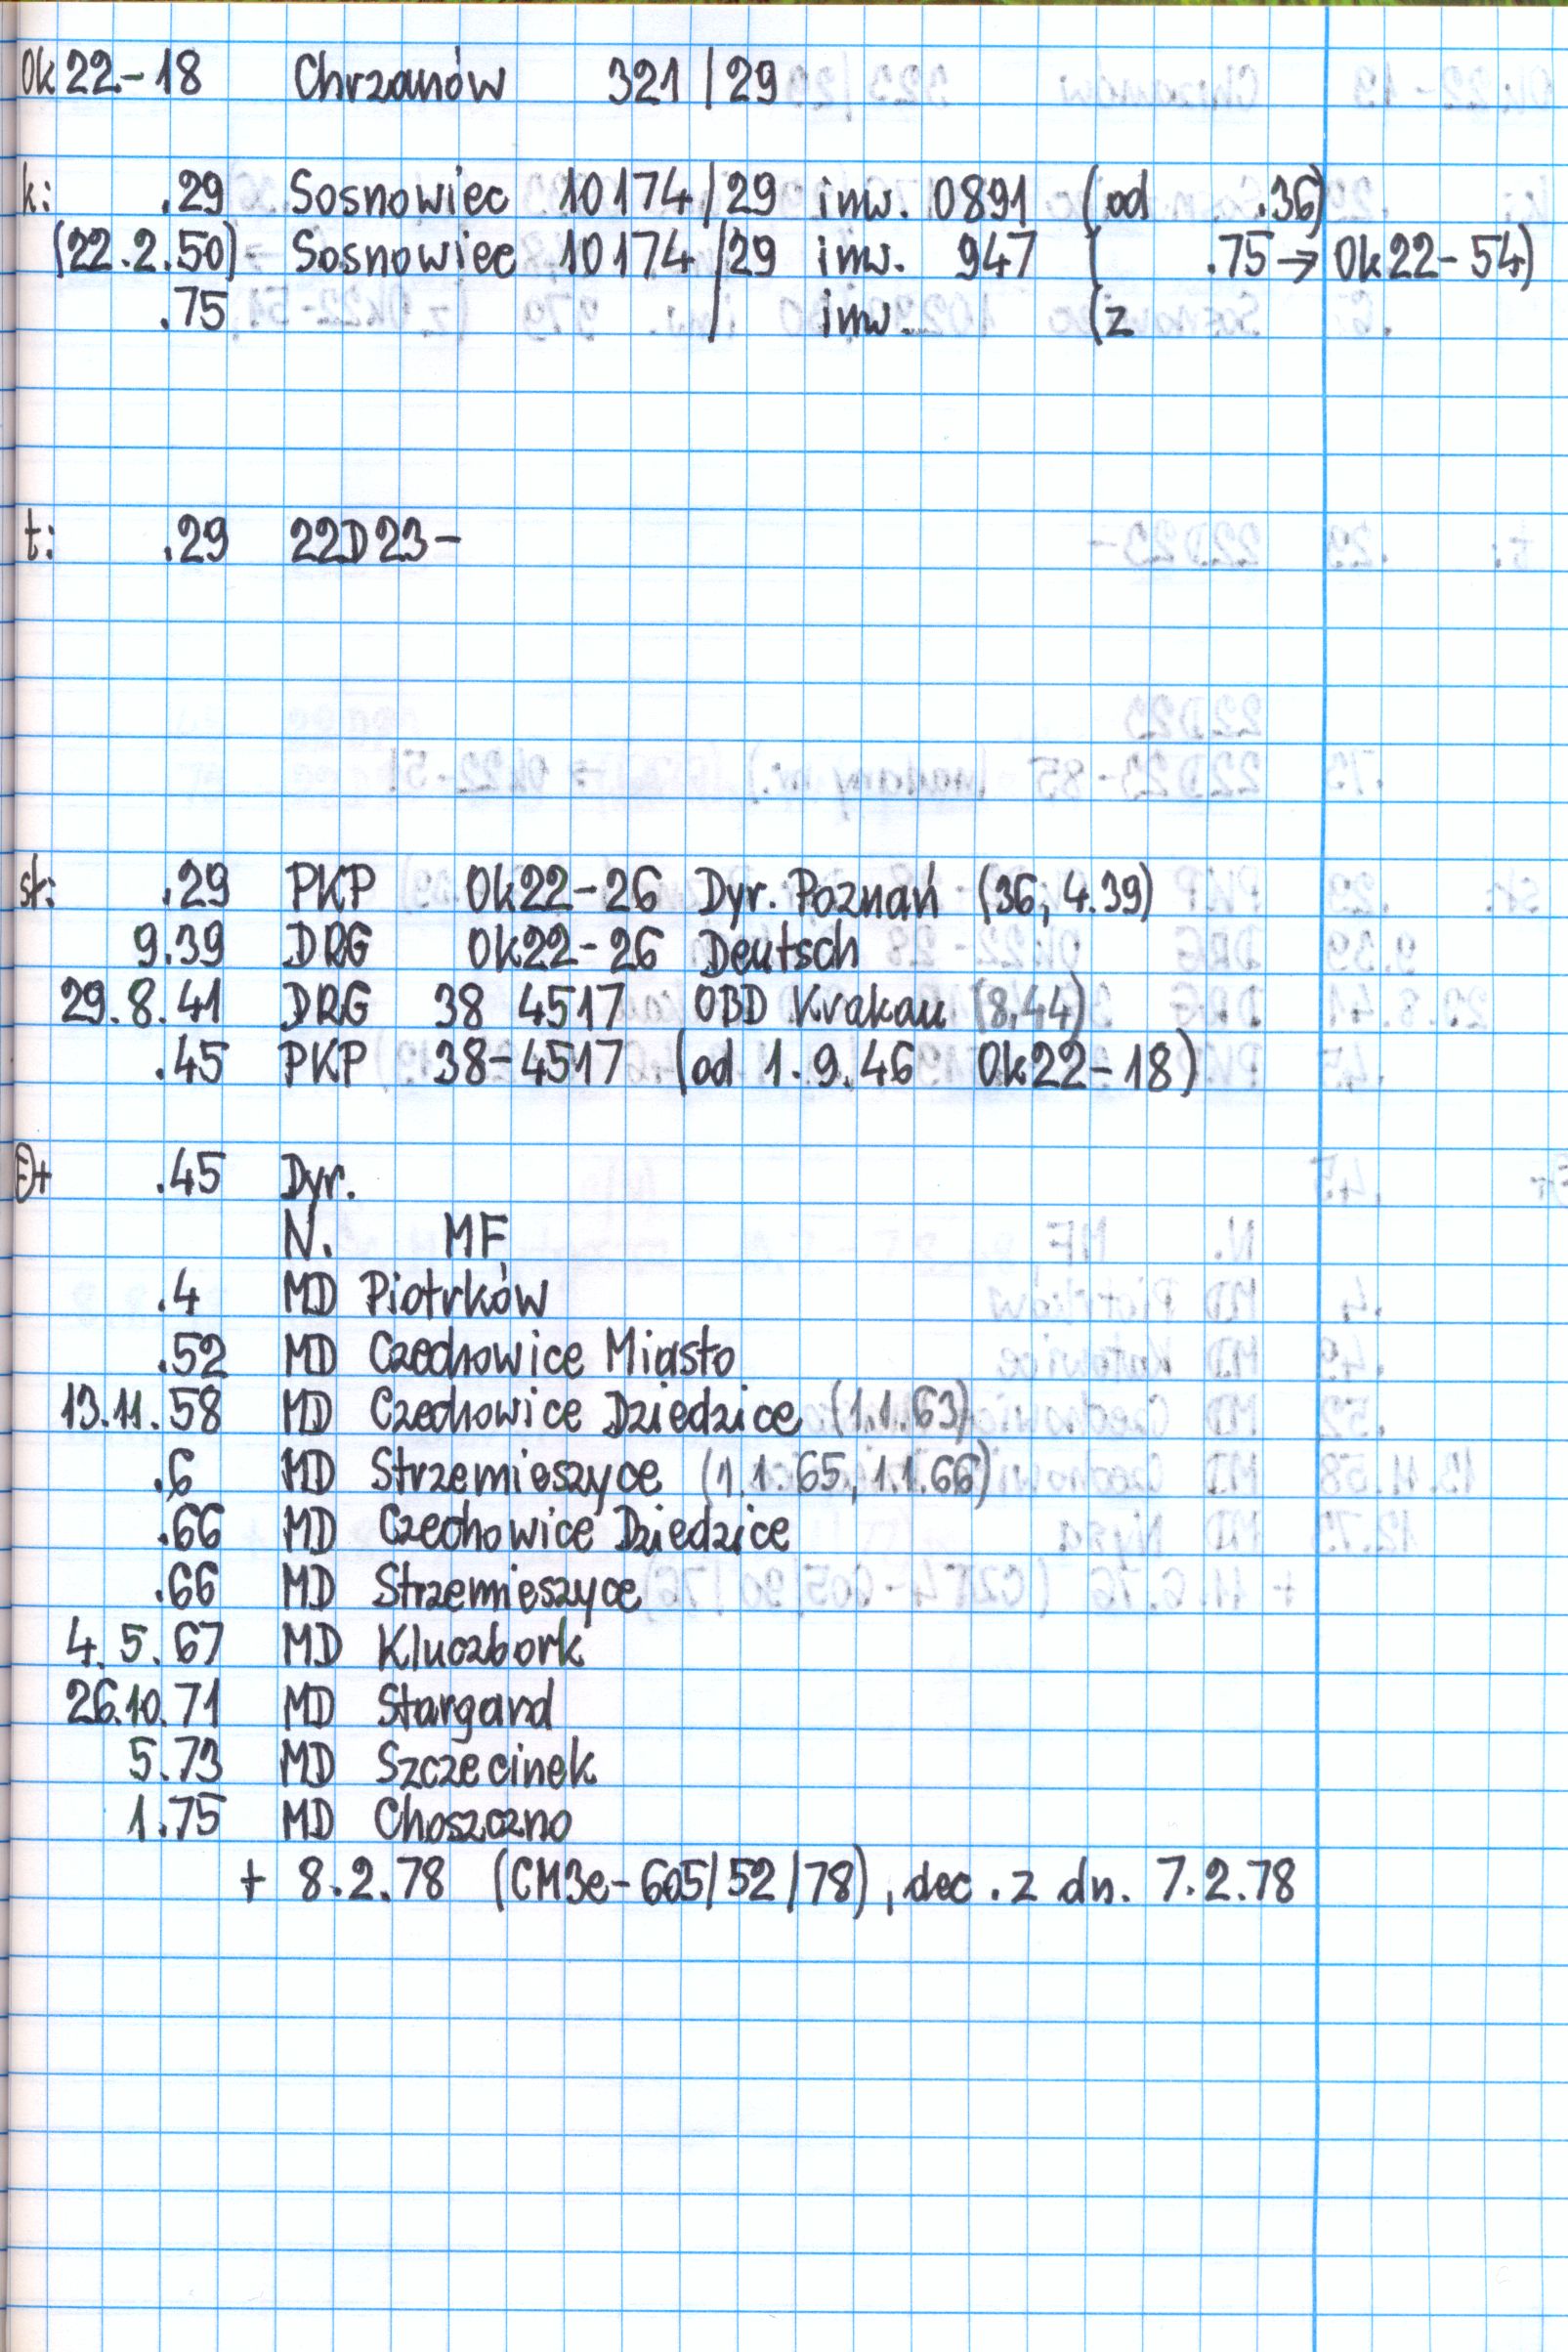 Ok22-18 Chrzanów 321/29
k: .29 Sosnowiec 10174/29 inw. 0891 (od .36)
(22.2.50) Sosnowiec 10174/29 inw. 947 ( .75 → Ok22-54)
.75 / inw. (z
t: .29 22D23-
st: .29 PKP Ok22-26 Dyr. Poznań (36, 4.39)
9.39 DRG Ok22-26 Deutsch
29.8.41 DRG 38 4517 OBD Krakau (8.44)
.45 PKP 38-4517 (od 1.9.46 Ok22-18)
.45 Dyr.
N. MF
.4 MD Piotrków
.52 MD Czechowice Miasto
13.11.58 MD Czechowice Dziedzice (1.1.63)
.6 MD Strzemieszyce (1.1.65, 1.1.66)
.66 MD Czechowice Dziedzice
.66 MD Strzemieszyce
4.5.67 MD Kluczbork
26.10.71 MD Stargard
5.73 MD Szczecinek
1.75 MD Choszczno
+ 8.2.78 (CM3e-605/52/78), dec. z dn. 7.2.78